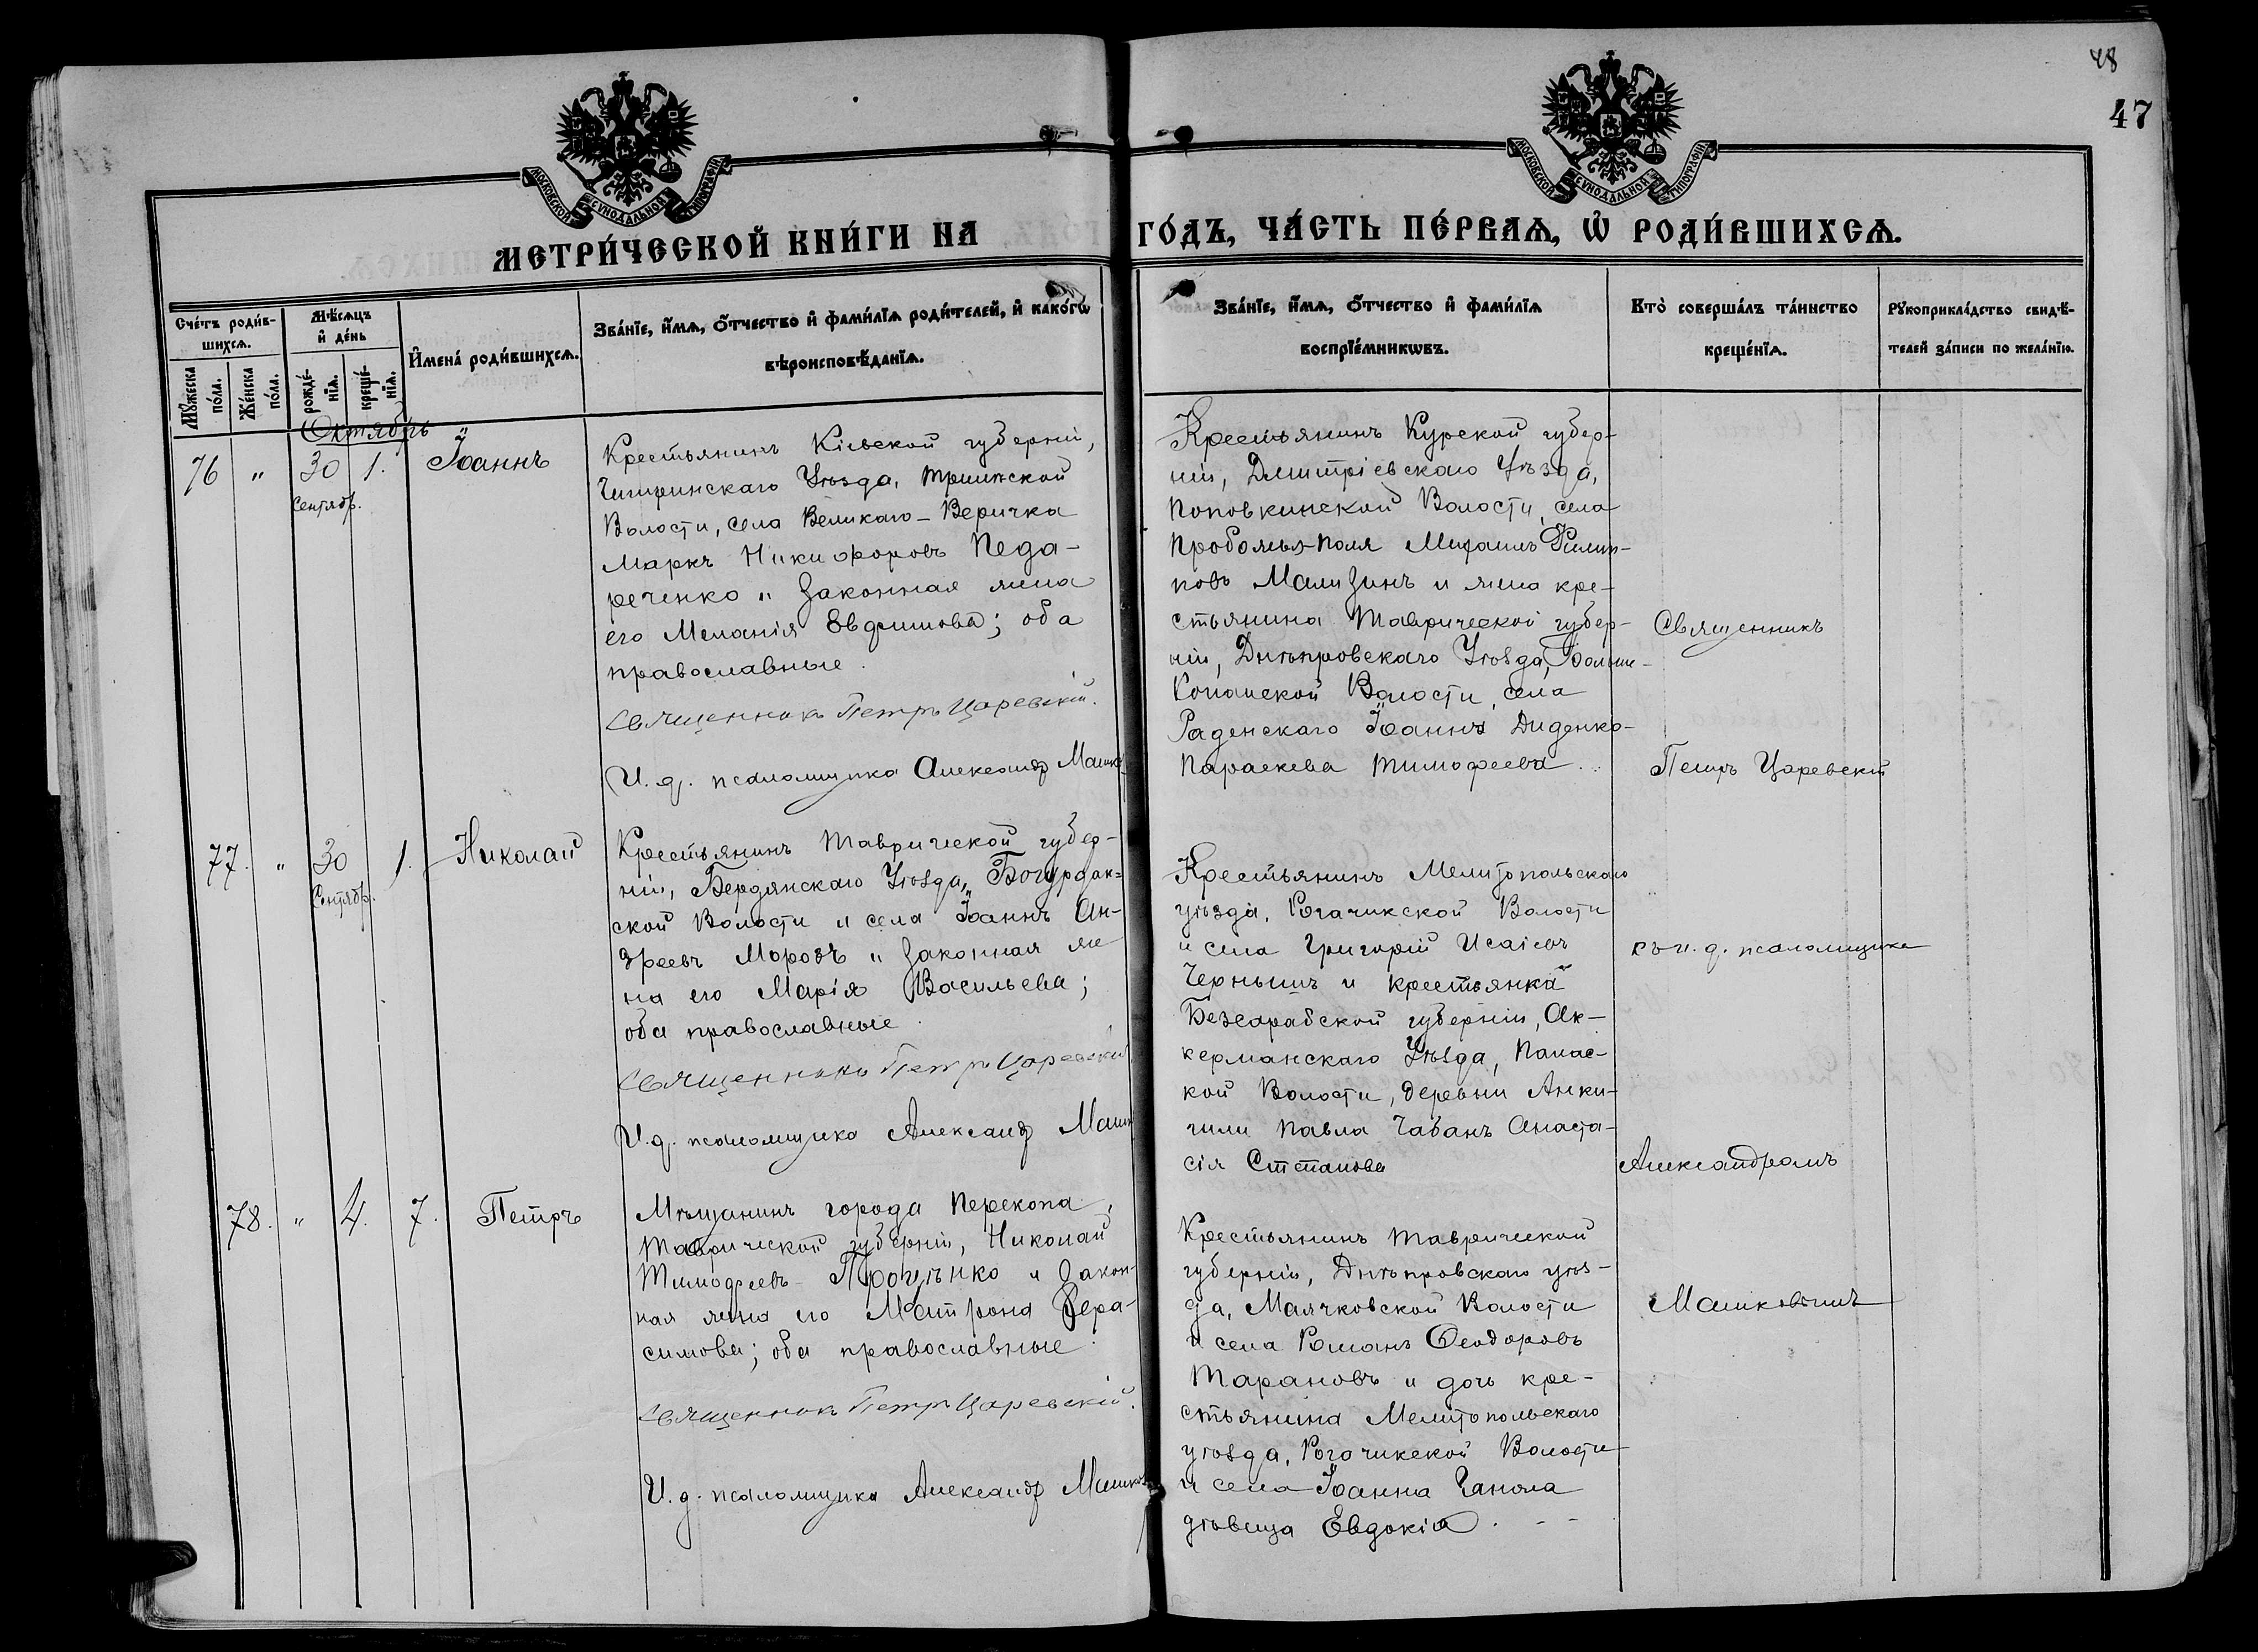 48
47
МОСКОВСКОЙ СУНОДАЛЬНОЙ ТИПОГРАФІИ
МОСКОВСКОЙ СУНОДАЛЬНОЙ ТИПОГРАФІИ
МЕТРИ́ЧЕСКОЙ КНИ́ГИ НА
ГО́ДЪ, ЧА́СТЬ ПЕ́РВАѦ, Ѡ҆ РОДИ́ВШИХСѦ.
Сче́тъ роди́в-
шихсѧ.
Мꙋ́жеска по́ла.
Же́нска по́ла.
Мѣ́сѧцъ
и҆ де́нь
рожде́-
нїѧ.
креще́-
нїѧ.
И҆мена̀ роди́вшихсѧ.
Зва́нїе, и҆́мѧ, ѻ҆́тчество и҆ фами́лїѧ роди́телей, и҆ како́гѡ
вѣроисповѣ́данїѧ.
Зва́нїе, и҆́мѧ, ѻ҆́тчество и҆ фами́лїѧ
воспрїе́мникѡвъ.
Кто̀ соверша́лъ та́инство
креще́нїѧ.
Рꙋкоприкла́дство свидѣ́-
телей за́писи по жела́нїю.
Октябрь
76 " 30 1. Іоаннъ
Сентябр.
Крестьянинъ Кіевской губерніи,
Чигиринскаго Уѣзда,
Волости, села Великаго-
Маркъ Никифоровъ Педа-
реченко и законная жена
его Меланія Евфимова; оба
православные.
Священникъ Петръ Царевскій.
И. д. псаломщика Александр
Крестьянинъ Курской губер-
ніи, Дмитріевскаго Уѣзда,
Поповкинской Волости, села
Поля Михаилъ Филип-
повъ и жена кре-
стьянина Таврической губер-
ніи, Днѣпровскаго Уѣзда, Больше-
Копанской Волости, села
Раденскаго Іоанна Диденко-
Параскева Тимофеева
Священникъ
Петръ Царевскій
77. " 30 1. Николай
Сентябр.
Крестьянинъ Таврической губер-
ніи, Бердянскаго Уѣзда,
ской Волости и села Іоаннъ Ан-
дреевъ Морозъ и законная же
на его Марія Васильева;
оба православные.
Священникъ Петръ Царевскій
И. д. псаломщика Александр
Крестьянинъ Мелитопольскаго
уѣзда, Рогачикской Волости
и села Григорій Исаіевъ
Чернышъ и крестьянка
Бессарабской губерніи, Ак-
керманскаго Уѣзда,
кой Волости, деревни Анки-
Павла Чабанъ Анаста-
сія Степанова
съ и. д. псаломщика
Александромъ
78. " 4. 7. Петръ
Мѣщанинъ города Перекопа,
Таврической губерніи, Николай
Тимофеевъ и закон-
ная жена его Матрона Гера-
симова; оба православные.
Священникъ Петръ Царевскій.
И. д. псаломщика Александр
Крестьянинъ Таврической
губерніи, Днѣпровскаго уѣз-
да, Маячковской Волости
и села Романъ Ѳеодоровъ
Тарановъ и дочь кре-
стьянина Мелитопольскаго
уѣзда, Рогачикской Волости
и села Іоанна
дѣвица Евдокія.